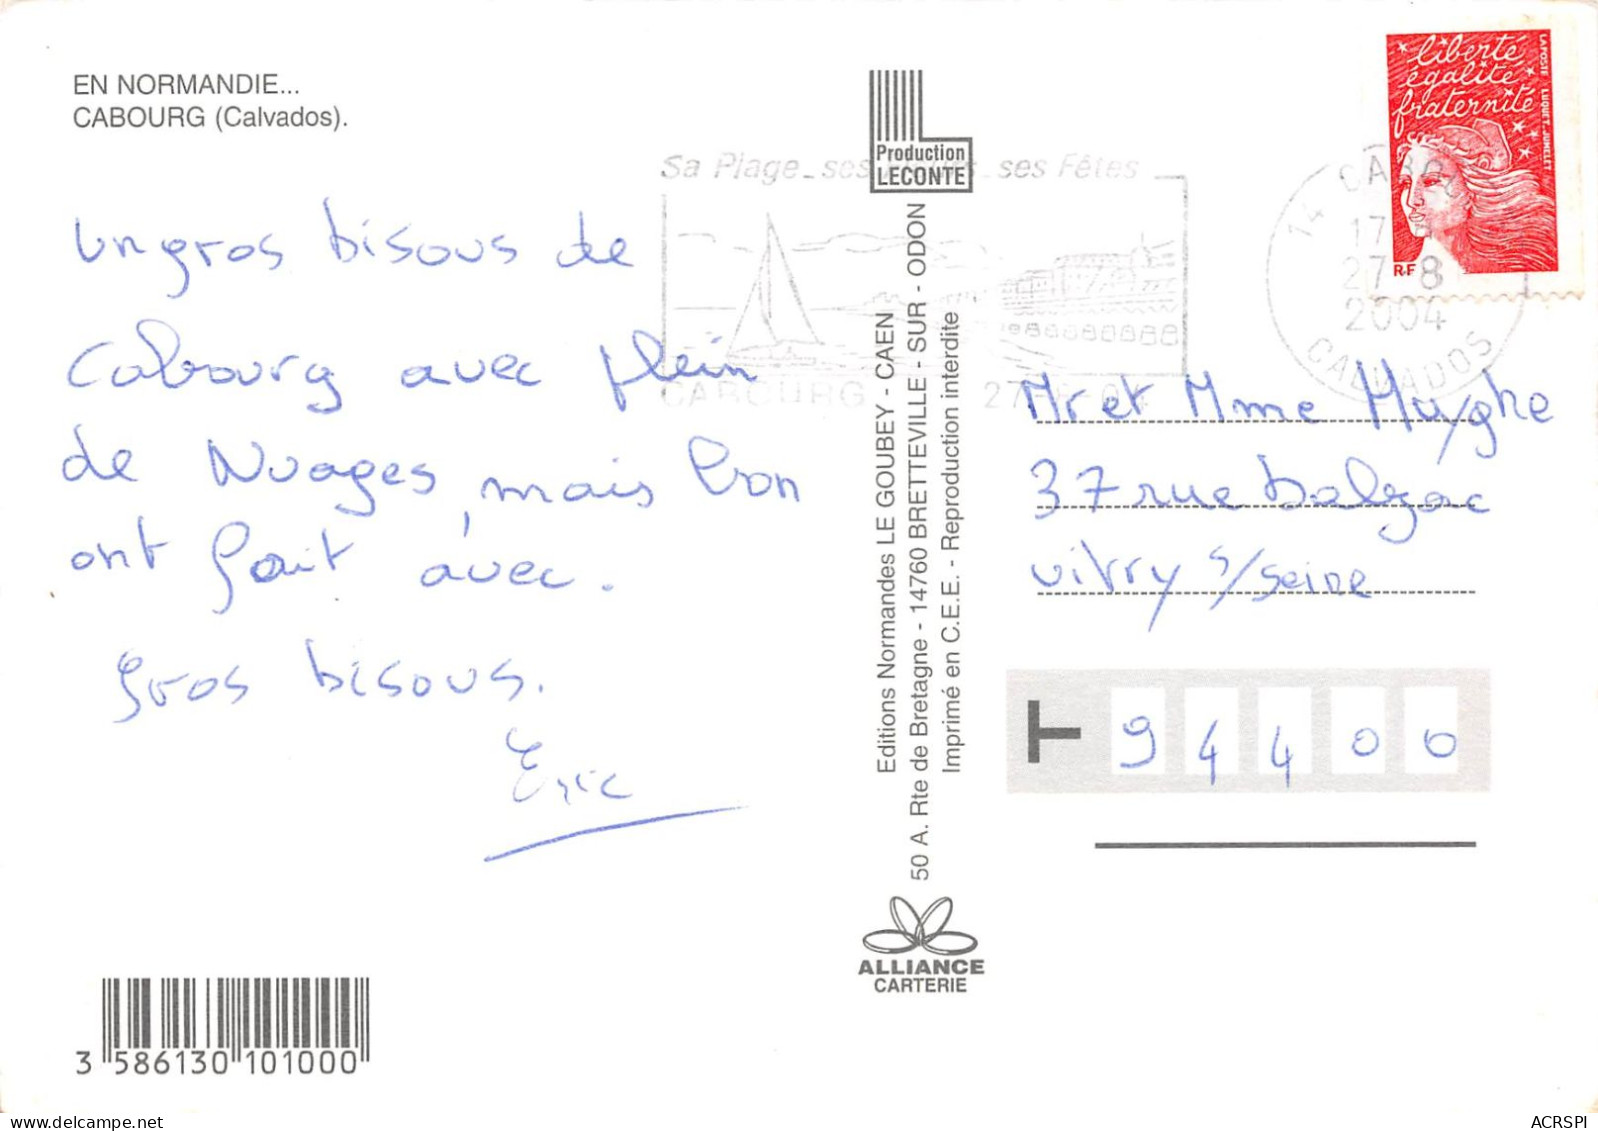 EN NORMANDIE...
CABOURG (Calvados).
Un gros bisous de
Cabourg avec plein
de Nuages, mais bon
ont fait avec.
gros bisous.
Eric
3 586130 101000
Production
LECONTE
Editions Normandes LE GOUBEY - CAEN
50 A. Rte de Bretagne - 14760 BRETTEVILLE - SUR - ODON
Imprimé en C.E.E. - Reproduction interdite
ALLIANCE
CARTERIE
Sa Plage - ses - ses Fêtes
CABOURG 27-8-04
liberté
égalité
fraternité
RF
LA POSTE LUQUET. JUMELET
14 CABOURG
17
27-8
2004
CALVADOS
Mr et Mme Huyghe
37 rue balzac
vitry s/seine
T 94400
ACRSPI